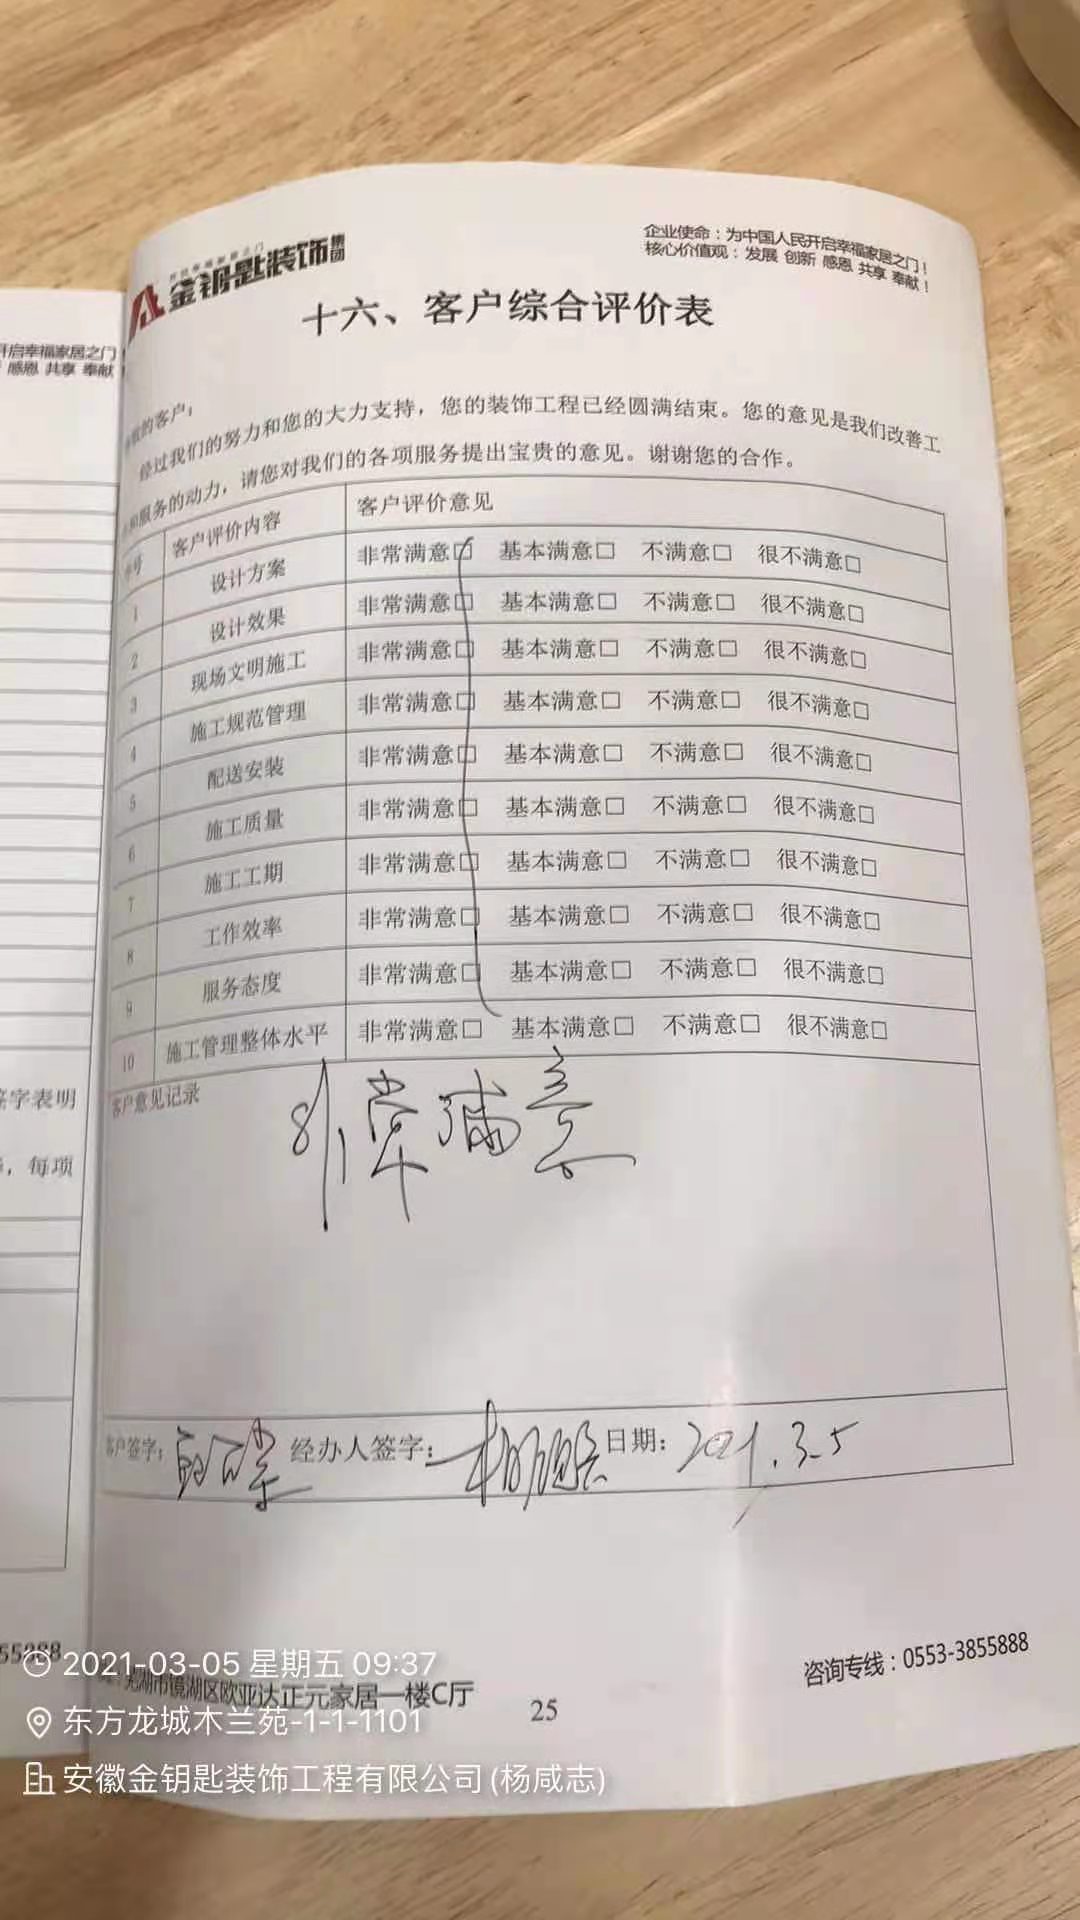 开启幸福家居之门
感恩 共享 奉献
签字表明
每项
金钥匙装饰集团
企业使命：为中国人民开启幸福家居之门！
核心价值观：发展 创新 感恩 共享 奉献！
十六、客户综合评价表
的客户：
经过我们的努力和您的大力支持，您的装饰工程已经圆满结束。您的意见是我们改善工
和服务的动力，请您对我们的各项服务提出宝贵的意见。谢谢您的合作。
号 客户评价内容 客户评价意见
1 设计方案 非常满意□ 基本满意□ 不满意□ 很不满意□
2 设计效果 非常满意□ 基本满意□ 不满意□ 很不满意□
3 现场文明施工 非常满意□ 基本满意□ 不满意□ 很不满意□
4 施工规范管理 非常满意□ 基本满意□ 不满意□ 很不满意□
5 配送安装 非常满意□ 基本满意□ 不满意□ 很不满意□
6 施工质量 非常满意□ 基本满意□ 不满意□ 很不满意□
7 施工工期 非常满意□ 基本满意□ 不满意□ 很不满意□
8 工作效率 非常满意□ 基本满意□ 不满意□ 很不满意□
9 服务态度 非常满意□ 基本满意□ 不满意□ 很不满意□
10 施工管理整体水平 非常满意□ 基本满意□ 不满意□ 很不满意□
客户意见记录
非常满意
客户签字： 经办人签字： 日期：2021.3.5
55888
咨询专线：0553-3855888
芜湖市镜湖区欧亚达正元家居一楼C厅
25
2021-03-05 星期五 09:37
东方龙城木兰苑-1-1-1101
安徽金钥匙装饰工程有限公司(杨咸志)